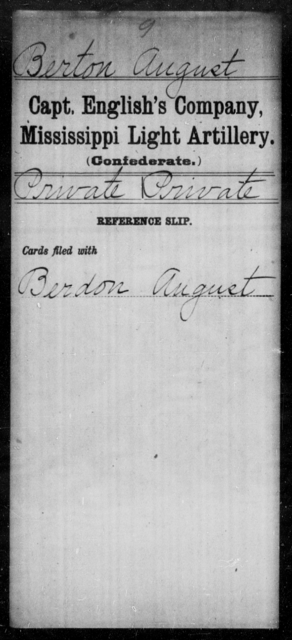 9
Berton August
Capt. English's Company,
Mississippi Light Artillery.
(Confederate.)
Private Private
REFERENCE SLIP.
Cards filed with
Berdon August